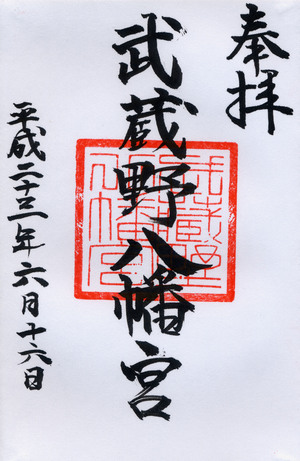 奉拝
武蔵野八幡宮
武蔵野八幡宮
平成二十三年六月十六日